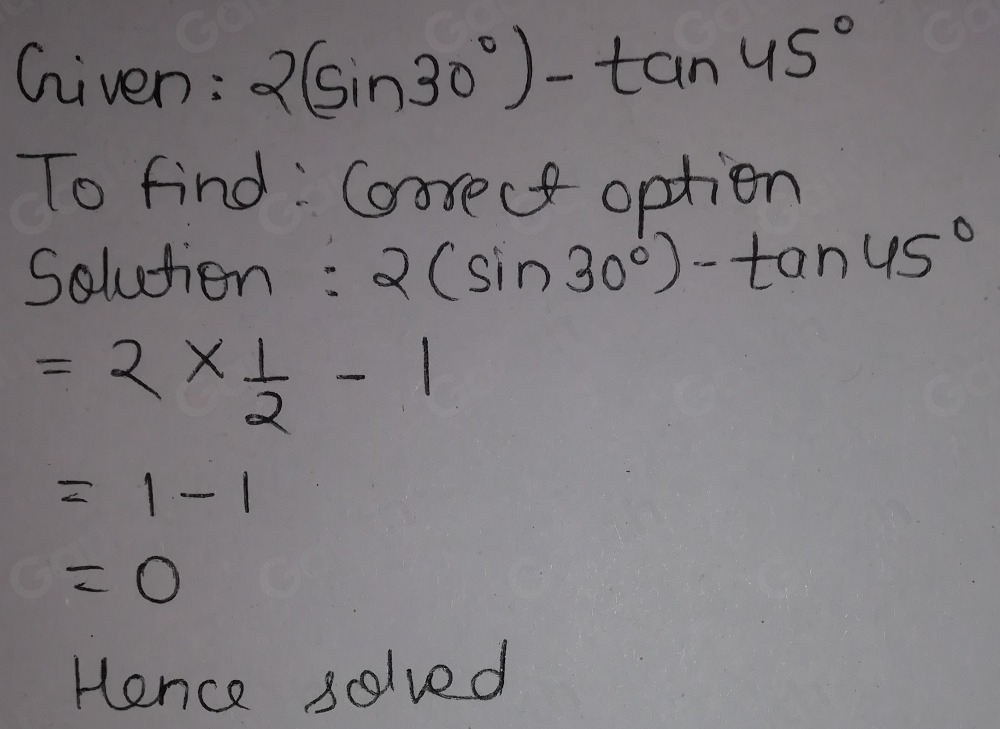 Given: 2(sin30°) - tan 45°
To find: Correct option
Solution : 2(sin30°) - tan45°
= 2 × 1/2 - 1
= 1 - 1
= 0
Hence solved